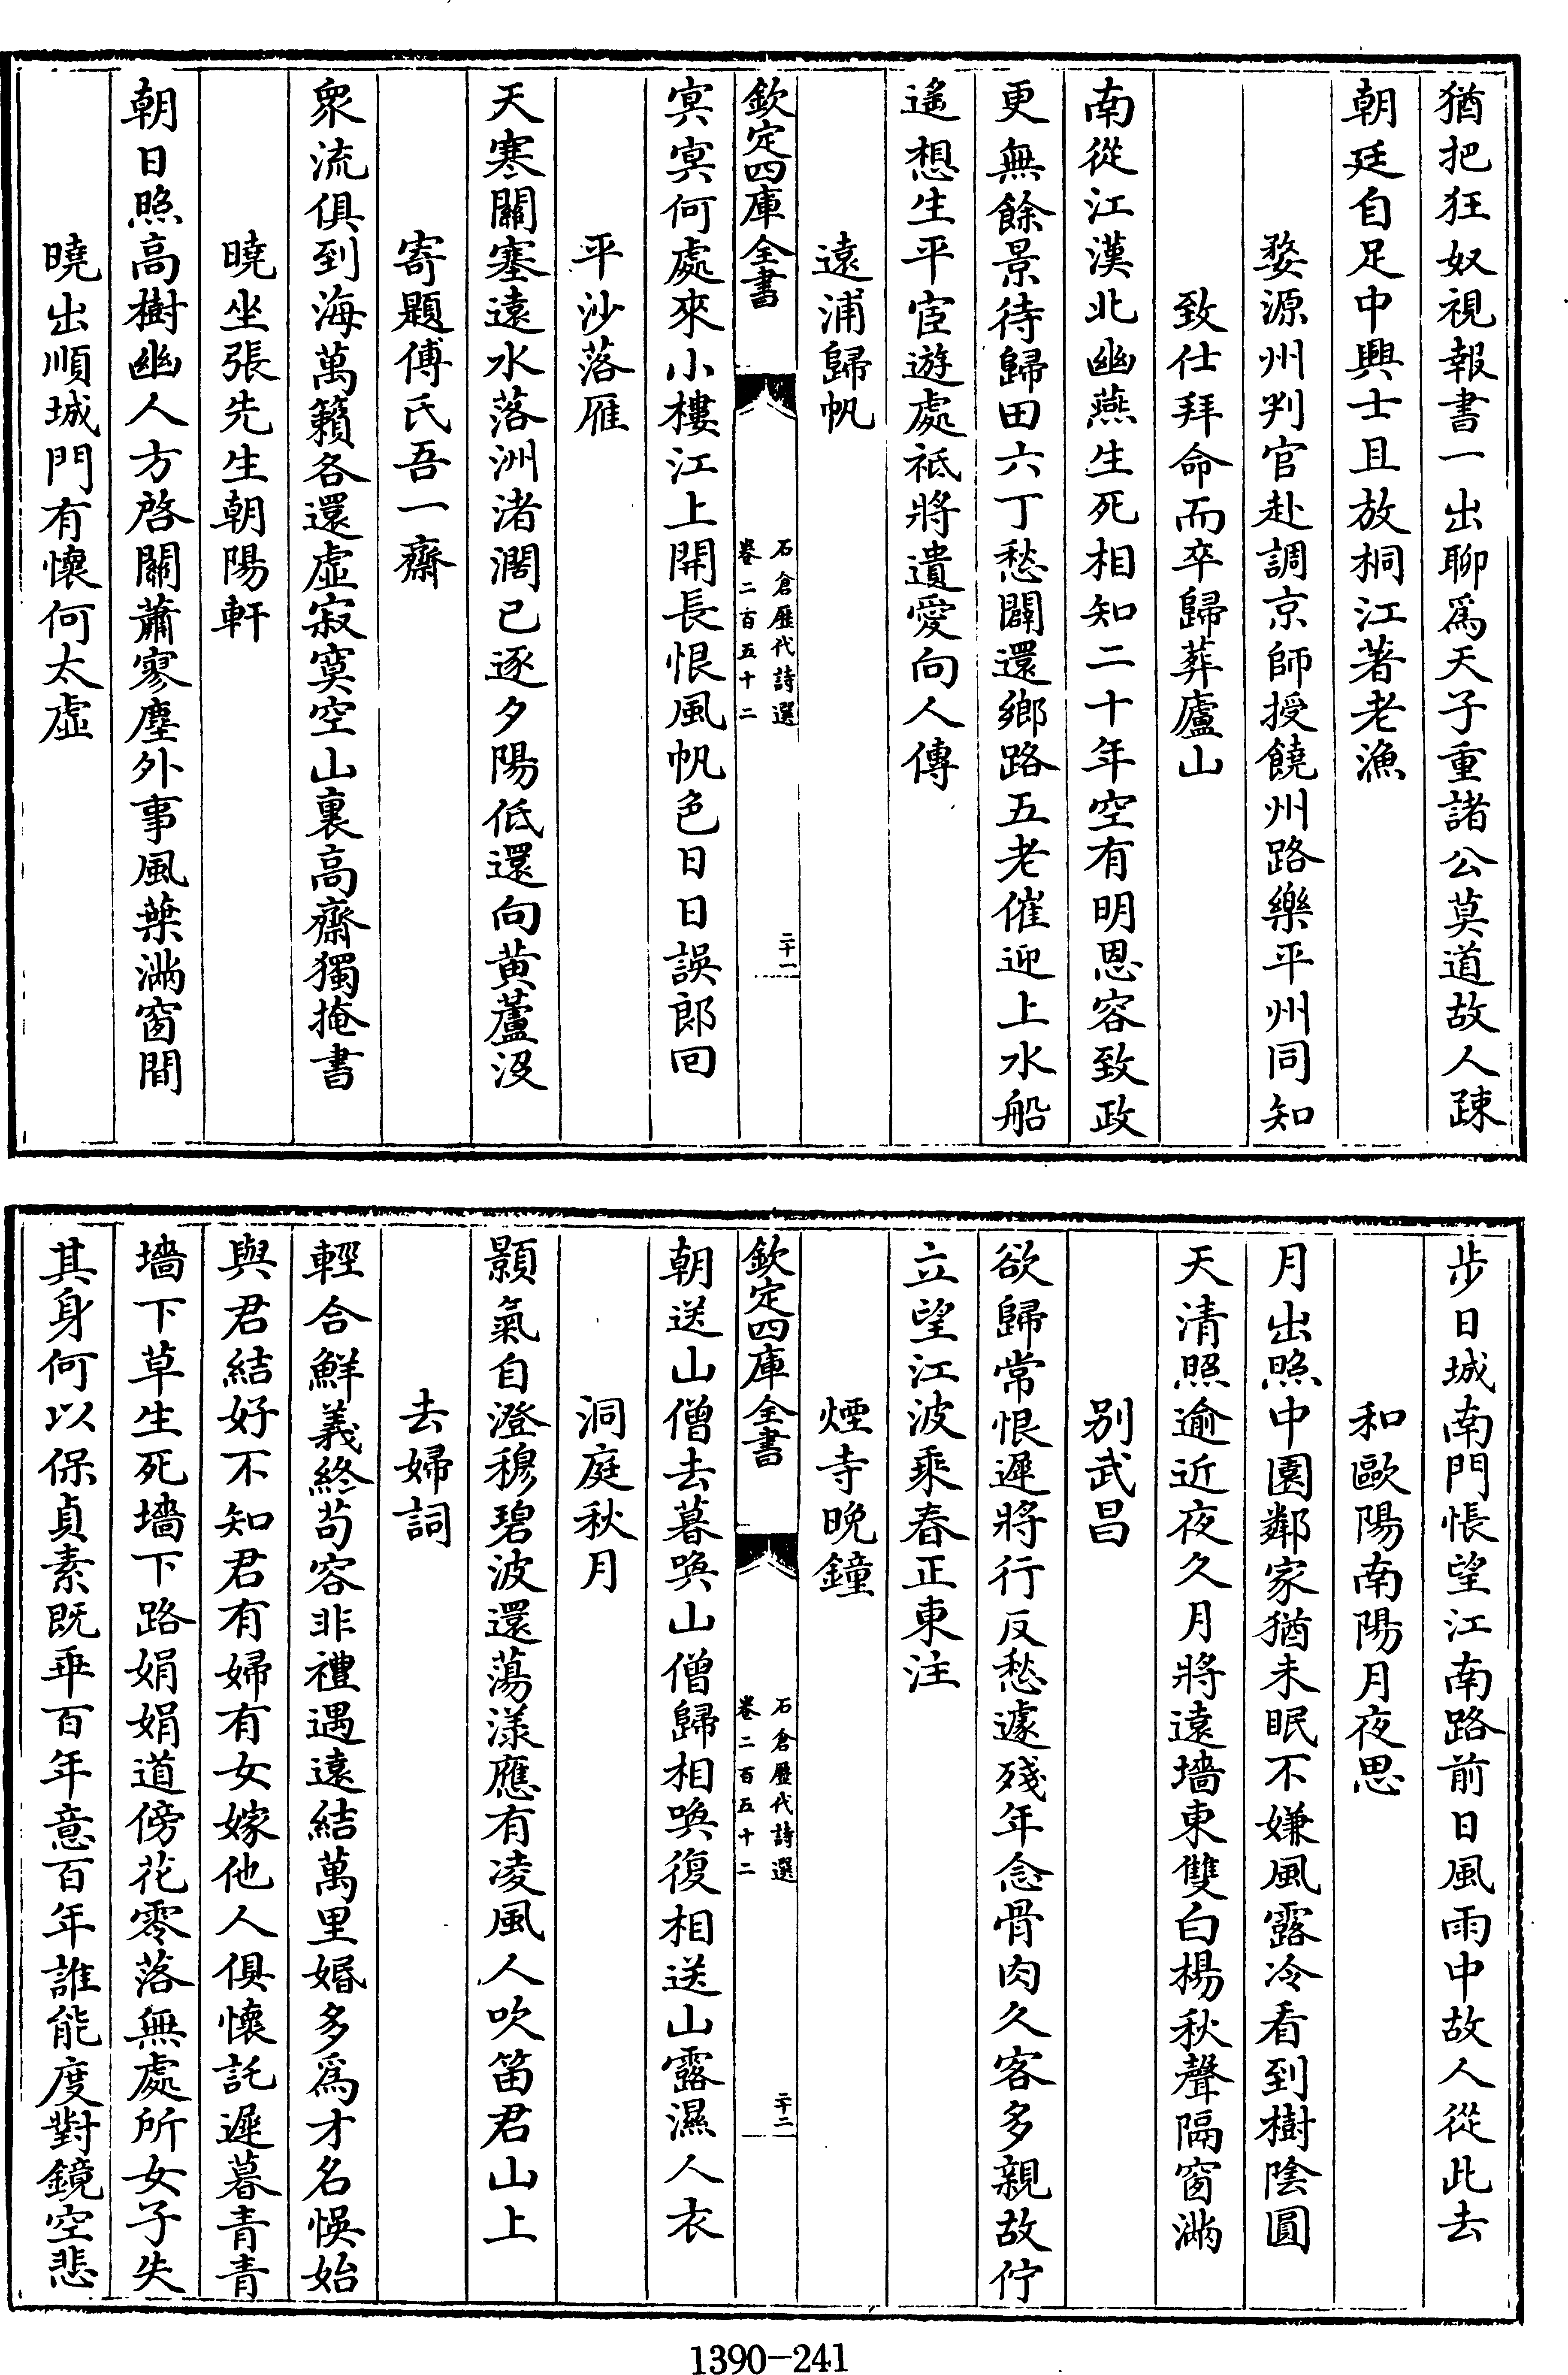 猶把狂奴視報書一出聊爲天子重諸公莫道故人踈
朝廷自足中興士且放桐江著老漁
婺源州判官赴調京師授饒州路樂平州同知
致仕拜命而卒歸葬廬山
南從江漢北幽燕生死相知二十年空有明恩容致政
更無餘景待歸田六丁愁闢還鄉路五老催迎上水船
遙想生平宦遊處祗將遺愛向人傳
遠浦歸帆
欽定四庫全書
石倉歷代詩選
卷二百五十二
二十一
㝠㝠何處來小樓江上開長恨風帆色日日誤郎回
平沙落雁
天寒關塞遠水落洲渚濶已逐夕陽低還向黄蘆沒
寄題傅氏吾一齋
衆流俱到海萬籟各還虛寂寞空山裏高齋獨掩書
曉坐張先生朝陽軒
朝日照高樹幽人方啓關蕭寥塵外事風葉滿窗間
曉出順城門有懷何太虛
步日城南門悵望江南路前日風雨中故人從此去
和歐陽南陽月夜思
月出照中園鄰家猶未眠不嫌風露冷看到樹陰圓
天清照逾近夜久月將遠墻東雙白楊秋聲隔窗滿
别武昌
欲歸常恨遲將行反愁遽殘年念骨肉久客多親故佇
立望江波乘春正東注
煙寺晩鐘
欽定四庫全書
石倉歷代詩選
卷二百五十二
二十二
朝送山僧去暮喚山僧歸相喚復相送山露濕人衣
洞庭秋月
顥氣自澄穆碧波還蕩漾應有凌風人吹笛君山上
去婦詞
輕合鮮義終苟容非禮遇遠結萬里婚多爲才名悞始
與君結好不知君有婦有女嫁他人俱懷託遲暮青青
墻下草生死墻下路娟娟道傍花零落無處所女子失
其身何以保貞素既乖百年意百年誰能度對鏡空悲
1390-241